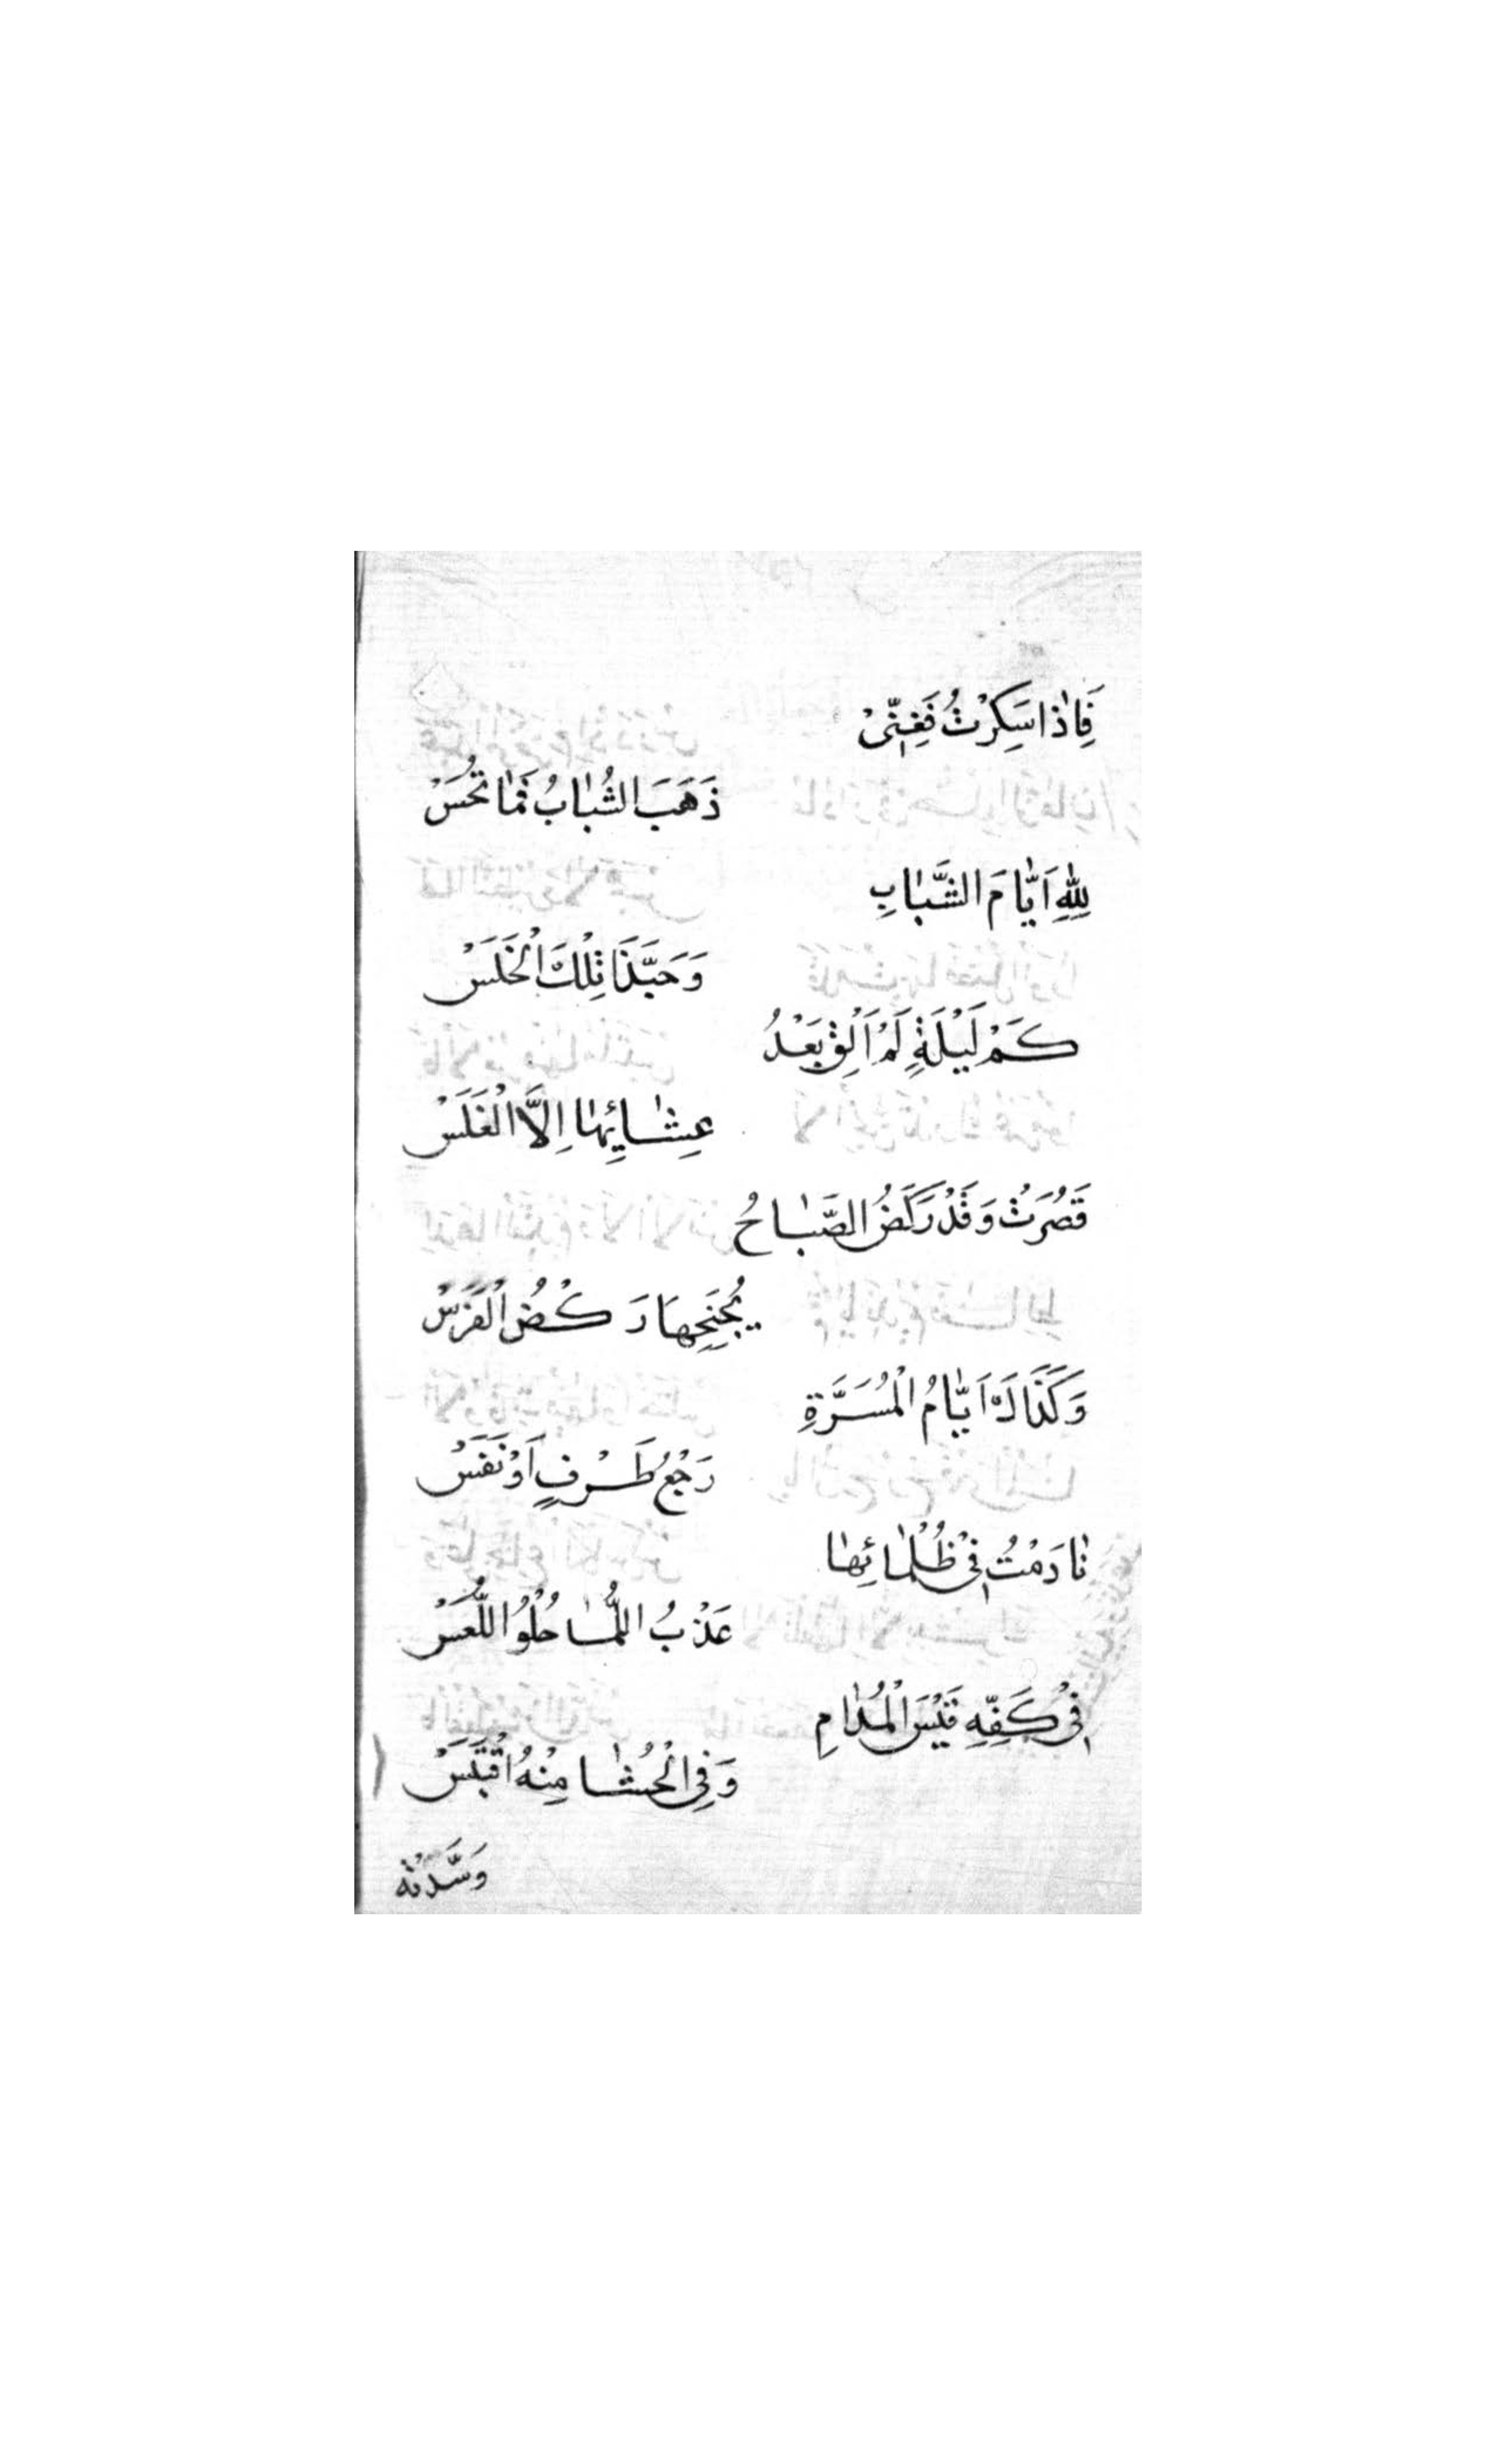 فَاِذَا سَكِرْتُ فَغَنِّنِىْ
ذَهَبَ الشَّبٰابُ فَمٰا تُحُسْ
لِلّٰهِ اَيّٰامَ الشَّبٰابِ
وَحَبَّذَا تِلْكَ الْخَلَسْ
كَمْ لَيْلَةٍ لَمْ اَلْقَ بَعْدُ
عِشٰائِهٰا اِلَّا الْغَلَسْ
قَصُرَتْ وَقَدْ رَكَضُ الصَّبٰاحُ
يُجْنِحِهَا رَكْضُ الْفَرَسْ
وَكَذَاكَ اَيّٰامُ الْمُسَرَّةِ
رَجْعُ طَرْفٍ اَوْ نَفَسْ
نٰادَمْتُ فِىْ ظُلْمٰائِهٰا
عَذْبُ اللُّمٰا حُلْوُ اللُّعَسْ
فِىْ كَفِّهِ قَبَسَ الْمُدٰامِ
وَفِى الْحُشٰا مِنْهُ اقْتَبَسْ
وَسَّدْتُهُ